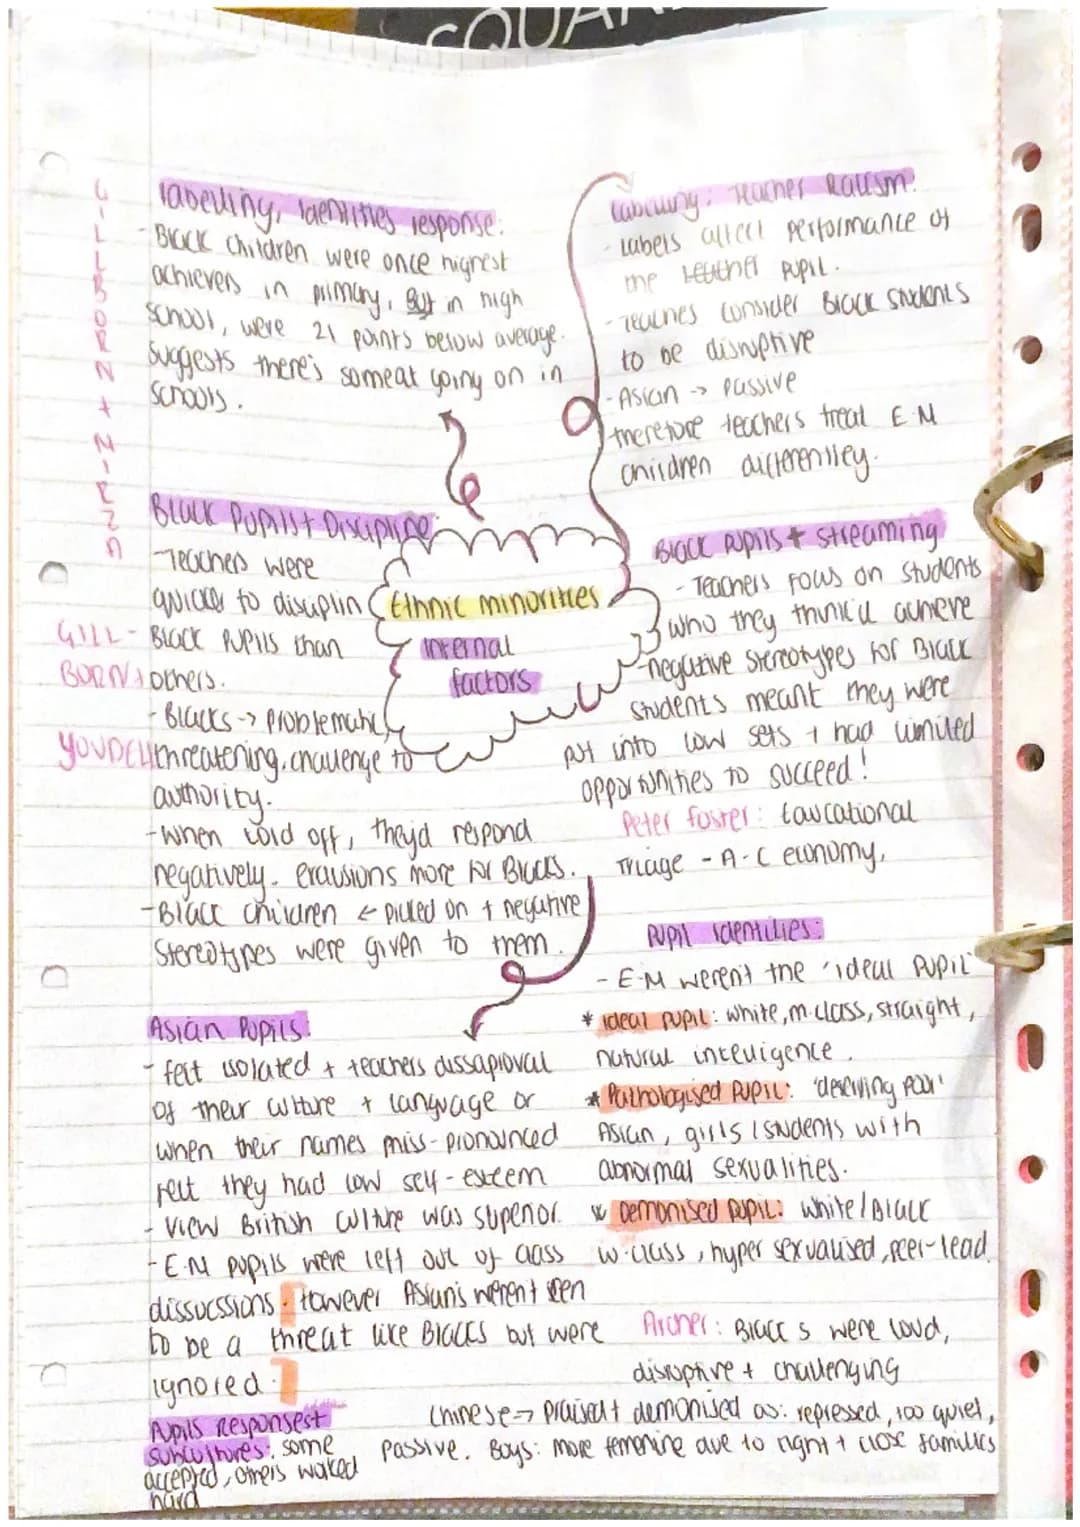 SQUAR
GILLBORN + MIRZA
labelling, Identities response:
- Black children were once highest
achievers in primary, But in high
school, were 21 points below average.
Suggests there's someat going on in
schools.
Labelling: Teacher Racism:
- Labels affect performance of
the pupil.
- Teaches consider Black students
to be disruptive
- Asian → passive
therefore teachers treat E.M
children differentley.
Ethnic minorities
internal
factors
Black Pupils + Discipline:
- Teachers were
quicker to disciplin
Black pupils than
others.
GILL-
BORN +
YOUDELL
- Blacks → problematic,
threatening, challenge to
authority.
- When told off, they'd respond
negatively. exclusions more for Blacks.
- Black children ← picked on + negative
Stereotypes were given to them.
Black pupils + streaming
- Teachers focus on students
who they think'll achieve
- negative stereotypes for Black
students meant they were
put into low sets + had limited
opportunities to succeed!
Peter foster: Educational
Triage - A-C economy,
Asian Pupils:
- felt isolated + teachers dissaproval
of their culture + language or
when their names miss-pronounced
felt they had low self-esteem
- View British culture was superior.
- E.M pupils were left out of class
dissucssions. However Asian's weren't seen
to be a threat like Blacks but were
ignored.
Pupil identities:
- E.M weren't the 'ideal pupil'
* ideal pupil: white, m.class, straight,
natural intelligence.
* Pathologised pupil: 'deserving poor'
Asian, girls / students with
abnormal sexualities.
* Demonised pupil: white/Black
w.class, hyper sexualised, peer-lead
Archer: Black s were loud,
disruptive + challenging
Chinese → praised + demonised as: repressed, too quiet,
passive. Boys: more femenine due to tight + close families
Pupils Responses +
subcultures: some
accepted, others worked
hard